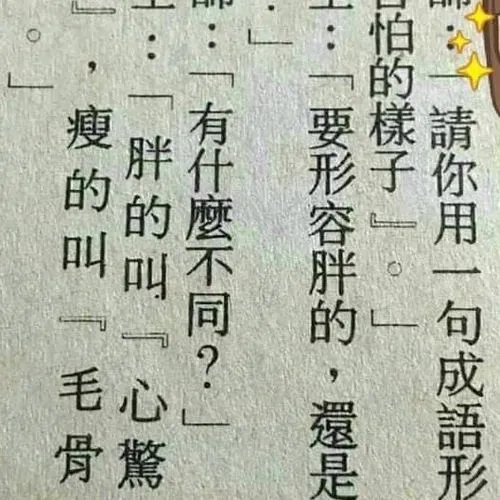 師：「請你用一句成語形
害怕的樣子』。」
生：「要形容胖的，還是
？」
師：「有什麼不同？」
生：「胖的叫『心驚
』，瘦的叫『毛骨
。」